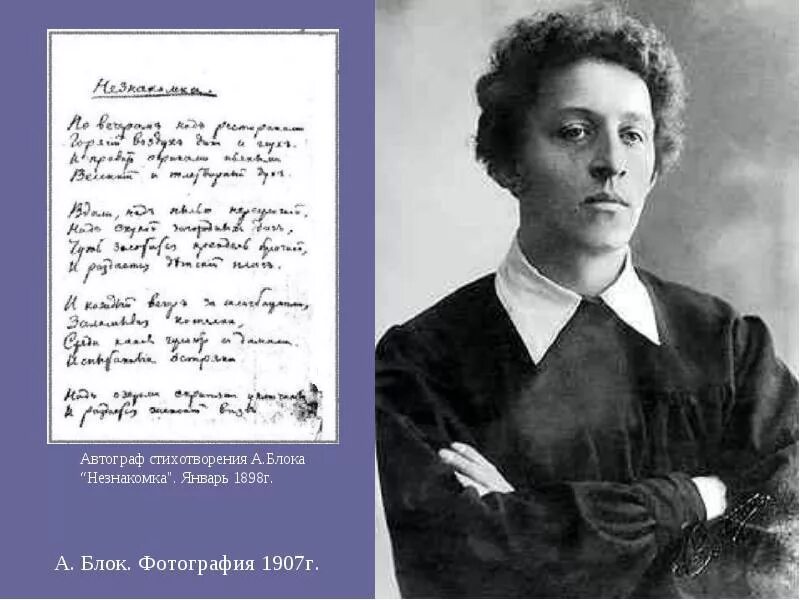 Незнакомка.
По вечерамъ надъ ресторанами
Горячій воздухъ дикъ и глухъ.
И правитъ окриками пьяными
Весенній и тлетворный духъ.
Вдали, надъ пылью переулочной,
Надъ скукой загородныхъ дачъ,
Чуть золотится крендель булочной,
И раздается дѣтскій плачъ.
И каждый вечеръ за шлагбаумами,
Заламывая котелки,
Среди канавъ гуляютъ съ дамами
Испытанные остряки
Надъ озеромъ скрипятъ уключины
И раздается женскій визгъ
Автограф стихотворения А.Блока
“Незнакомка". Январь 1898г.
А. Блок. Фотография 1907г.